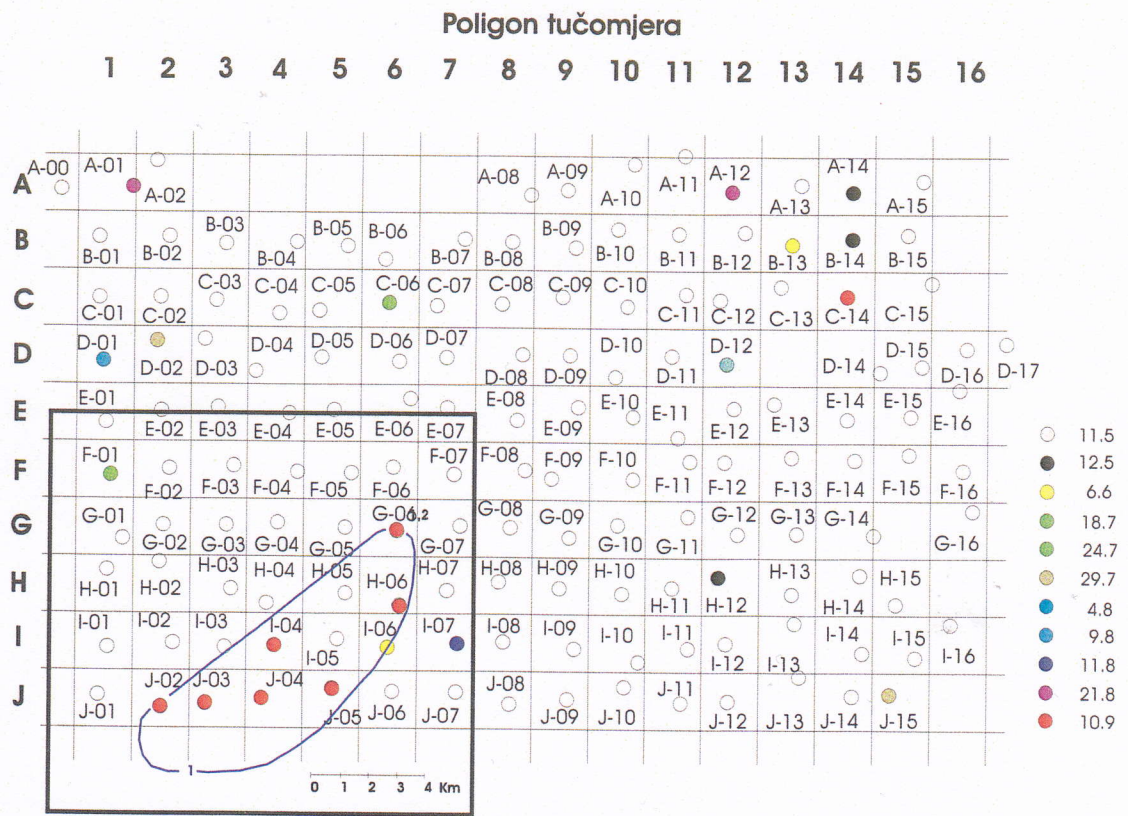 Poligon tučomjera
1 2 3 4 5 6 7 8 9 10 11 12 13 14 15 16
A-00 A-01 A-02 A-08 A-09 A-10 A-11 A-12 A-13 A-14 A-15
A
B-01 B-02 B-03 B-04 B-05 B-06 B-07 B-08 B-09 B-10 B-11 B-12 B-13 B-14 B-15
B
C-01 C-02 C-03 C-04 C-05 C-06 C-07 C-08 C-09 C-10 C-11 C-12 C-13 C-14 C-15
C
D-01 D-02 D-03 D-04 D-05 D-06 D-07 D-08 D-09 D-10 D-11 D-12 D-14 D-15 D-16 D-17
D
E-01 E-02 E-03 E-04 E-05 E-06 E-07 E-08 E-09 E-10 E-11 E-12 E-13 E-14 E-15 E-16
E
F-01 F-02 F-03 F-04 F-05 F-06 F-07 F-08 F-09 F-10 F-11 F-12 F-13 F-14 F-15 F-16
F
G-01 G-02 G-03 G-04 G-05 G-06 1,2 G-07 G-08 G-09 G-10 G-11 G-12 G-13 G-14 G-16
G
H-01 H-02 H-03 H-04 H-05 H-06 H-07 H-08 H-09 H-10 H-11 H-12 H-13 H-14 H-15
H
I-01 I-02 I-03 I-04 I-05 I-06 I-07 I-08 I-09 I-10 I-11 I-12 I-13 I-14 I-15 I-16
I
J-01 J-02 J-03 J-04 J-05 J-06 J-07 J-08 J-09 J-10 J-11 J-12 J-13 J-14 J-15
J
1
0 1 2 3 4 Km
11.5
12.5
6.6
18.7
24.7
29.7
4.8
9.8
11.8
21.8
10.9